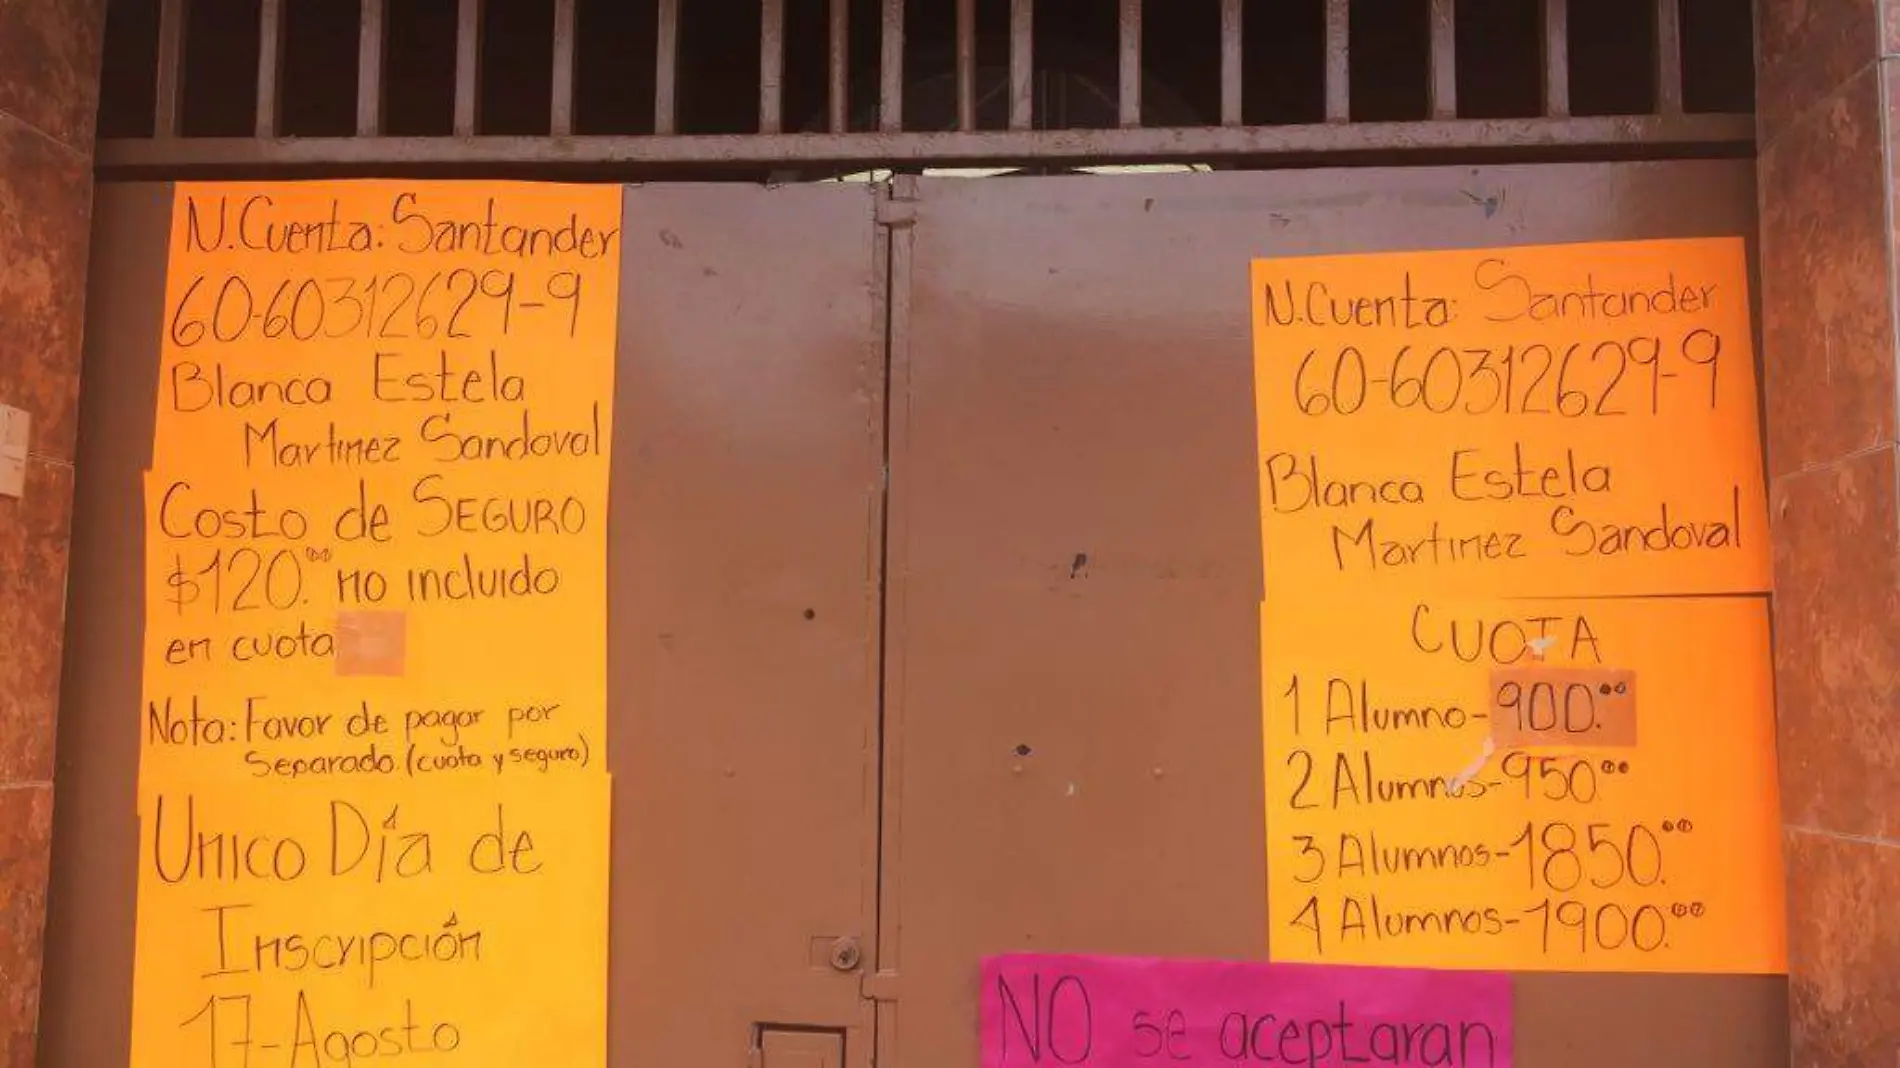 N.Cuenta: Santander
60-60312629-9
Blanca Estela
Martinez Sandoval
Costo de SEGURO
$120.00 no incluido
en cuota
Nota: Favor de pagar por
Separado. (cuota y seguro)
Unico Día de
Inscripción
17-Agosto
N.Cuenta: Santander
60-60312629-9
Blanca Estela
Martinez Sandoval
CUOTA
1 Alumno-900.00
2 Alumnos-950.00
3 Alumnos-1850.00
4 Alumnos-1900.00
NO se aceptaran